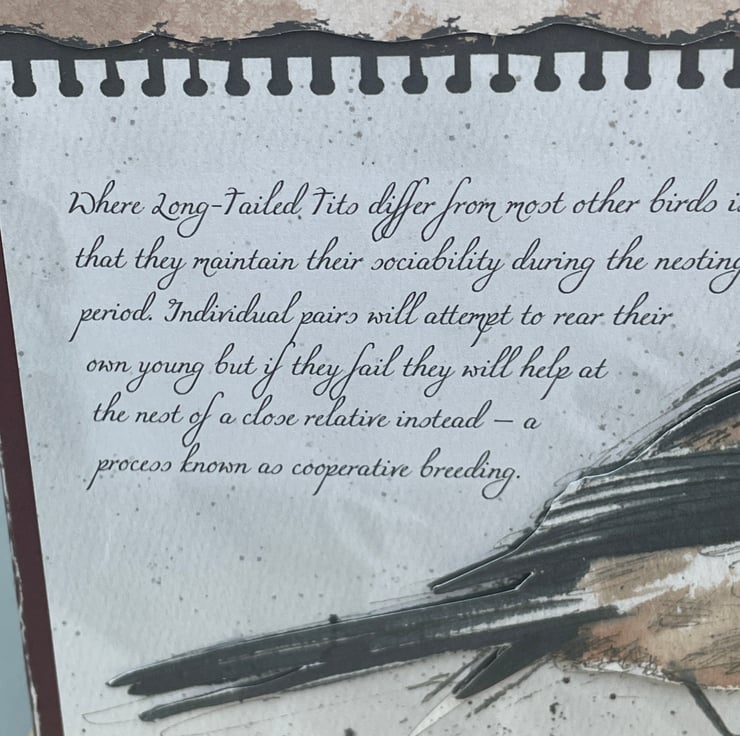 Where Long-Tailed Tits differ from most other birds is
that they maintain their sociability during the nesting
period. Individual pairs will attempt to rear their
own young but if they fail they will help at
the nest of a close relative instead – a
process known as cooperative breeding.